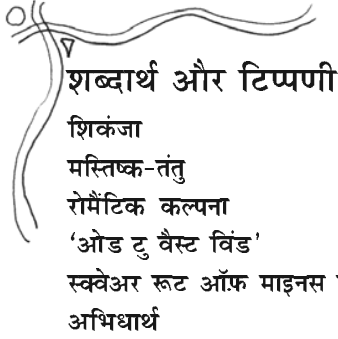 शब्दार्थ और टिप्पणी
शिकंजा
मस्तिष्क-तंतु
रोमैंटिक कल्पना
‘ओड टु वैस्ट विंड’
स्क्वेअर रूट ऑफ़ माइनस
अभिधार्थ